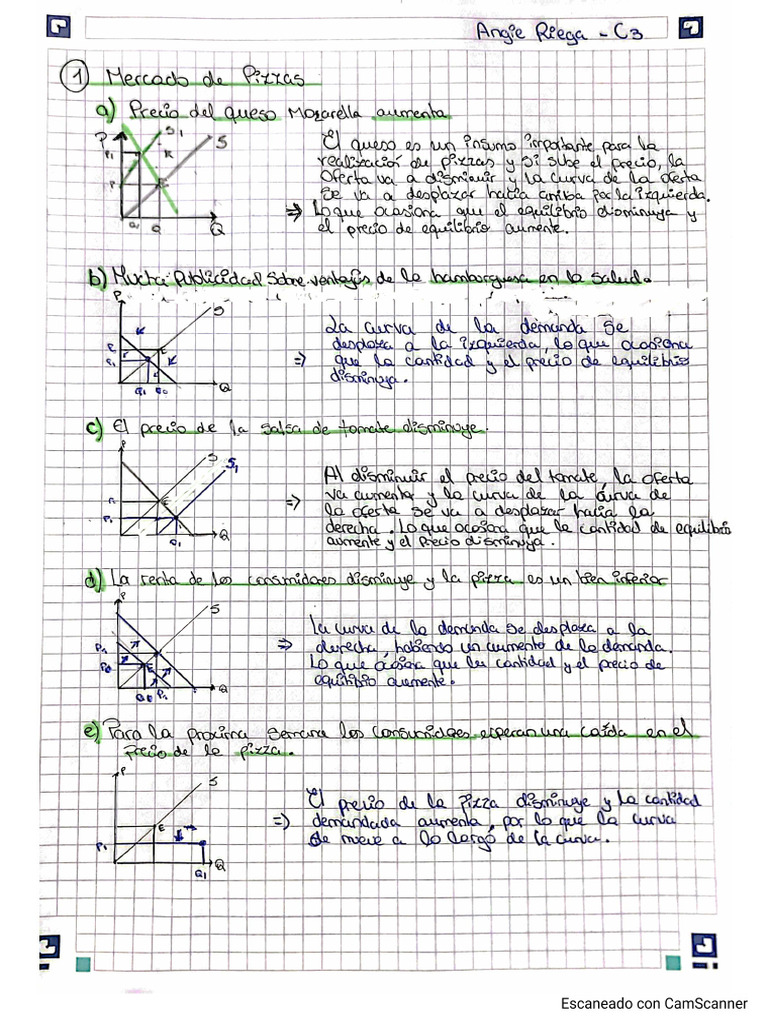 Angie Riega - C3
1 Mercado de Pizzas
a) Precio del queso Mozarella aumenta
El queso es un insumo importante para la
realización de pizzas y si sube el precio, la
oferta va a disminuir y la curva de la oferta
se va a desplazar hacia arriba por la izquierda.
⇒ Lo que ocasiona que el equilibrio disminuya y
el precio de equilibrio aumente.
P P1 P S1 S R E Q1 Q Q
b) Mucha Publicidad sobre ventajas de la hamburguesa en la salud.
P S P1 Q1 Q0 Q
La curva de la demanda se
desplaza a la izquierda, lo que ocasiona
⇒ que la cantidad y el precio de equilibrio
disminuya.
c) El precio de la salsa de tomate disminuye.
P S S1 E P1 Q1 Q
Al disminuir el precio del tomate, la oferta
⇒ va aumentar y la curva de la curva de
la oferta se va a desplazar hacia la
derecha. Lo que ocasiona que la cantidad de equilibrio
aumente y el precio disminuya.
d) La renta de los consumidores disminuye y la pizza es un bien inferior
P S P1 P0 E Q0 P1 Q
La curva de la demanda se desplaza a la
⇒ derecha, habiendo un aumento de la demanda.
Lo que ocasiona que la cantidad y el precio de
equilibrio aumente.
e) Para la proxima semana los consumidores esperan una caída en el
Precio de la pizza.
P S E P1 Q1 Q
El precio de la pizza disminuye y la cantidad
⇒ demandada aumenta, por lo que la curva
se mueve a lo largo de la curva.
Escaneado con CamScanner